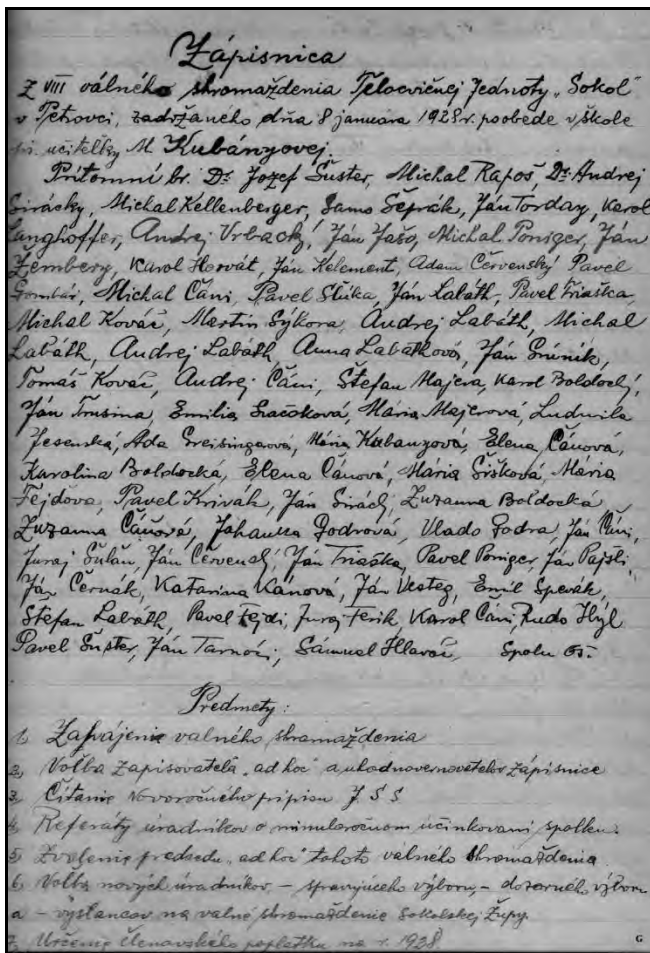 Zápisnica
z VIII válného shromaždenia Telocvičnej Jednoty „Sokol"
v Petrovci, zadržaného dňa 8 januára 1928 r. poobede v škole
učiteľky M. Kubányovej.
Prítomní br. Dr. Jozef Šuster, Michal Rapoš, Dr. Andrej
Sirácky, Michal Kellenberger, Samo Šeprák, Ján Torday, Karol
Langhoffer, Andrej Vrbacký, Ján Jašo, Michal Poniger, Ján
Zembery, Karol Horvát, Ján Kelement, Adam Červenský Pavel
Gombár, Michal Čáni, Pavel Slúka, Ján Labáth, Pavel Triaška,
Michal Kováč, Martin Sýkora, Andrej Labáth, Michal
Labáth, Andrej Labáth, Anna Labáthová, Ján
Tomáš Kováč, Andrej Čáni, Štefan Majera, Karol Boldocký,
Ján Trusina Emilia Mária Majerová, Ludmila
Jesenská, Ada Mária Kubanyová, Elena Čáňová,
Karolina Boldocká, Elena Čáňová, Mária Šišková, Maria
Fejdova, Pavel Krivák, Ján Zuzanna Boldocká
Zuzanna Čáňová, Johanna Godrová, Vlado Godra, Ján Čáni,
Juraj Ján Ján Triaška, Pavel Poniger, Ján
Ján Černák, Katarina Kánová, Ján Emil Spevák,
Štefan Labáth, Pavel Fejdi, Juraj Ferik, Karol Čáni, Rudo Hýl
Pavel Šuster, Ján Sámuel Hlaváč, Spolu 65.
Predmety:
1, Zahájenie valného shromaždenia
2, Voľba zapisovateľa „ad hoc" a uhodnovernovateľov zápisnice
3, Čítanie Novoročného prípisu J. S S
4, Referáty úradníkov o minuloročnom účinkovaní spolku.
5, Zvolenie predsedu „ad hoc" tohoto válného shromaždenia.
6, Voľba nových úradníkov, – správujúceho výboru, – dozorného výboru
a – výslancov na valné shromaždenie Sokolskej Župy.
7, Určenie členovského poplatku na r. 1928.
G